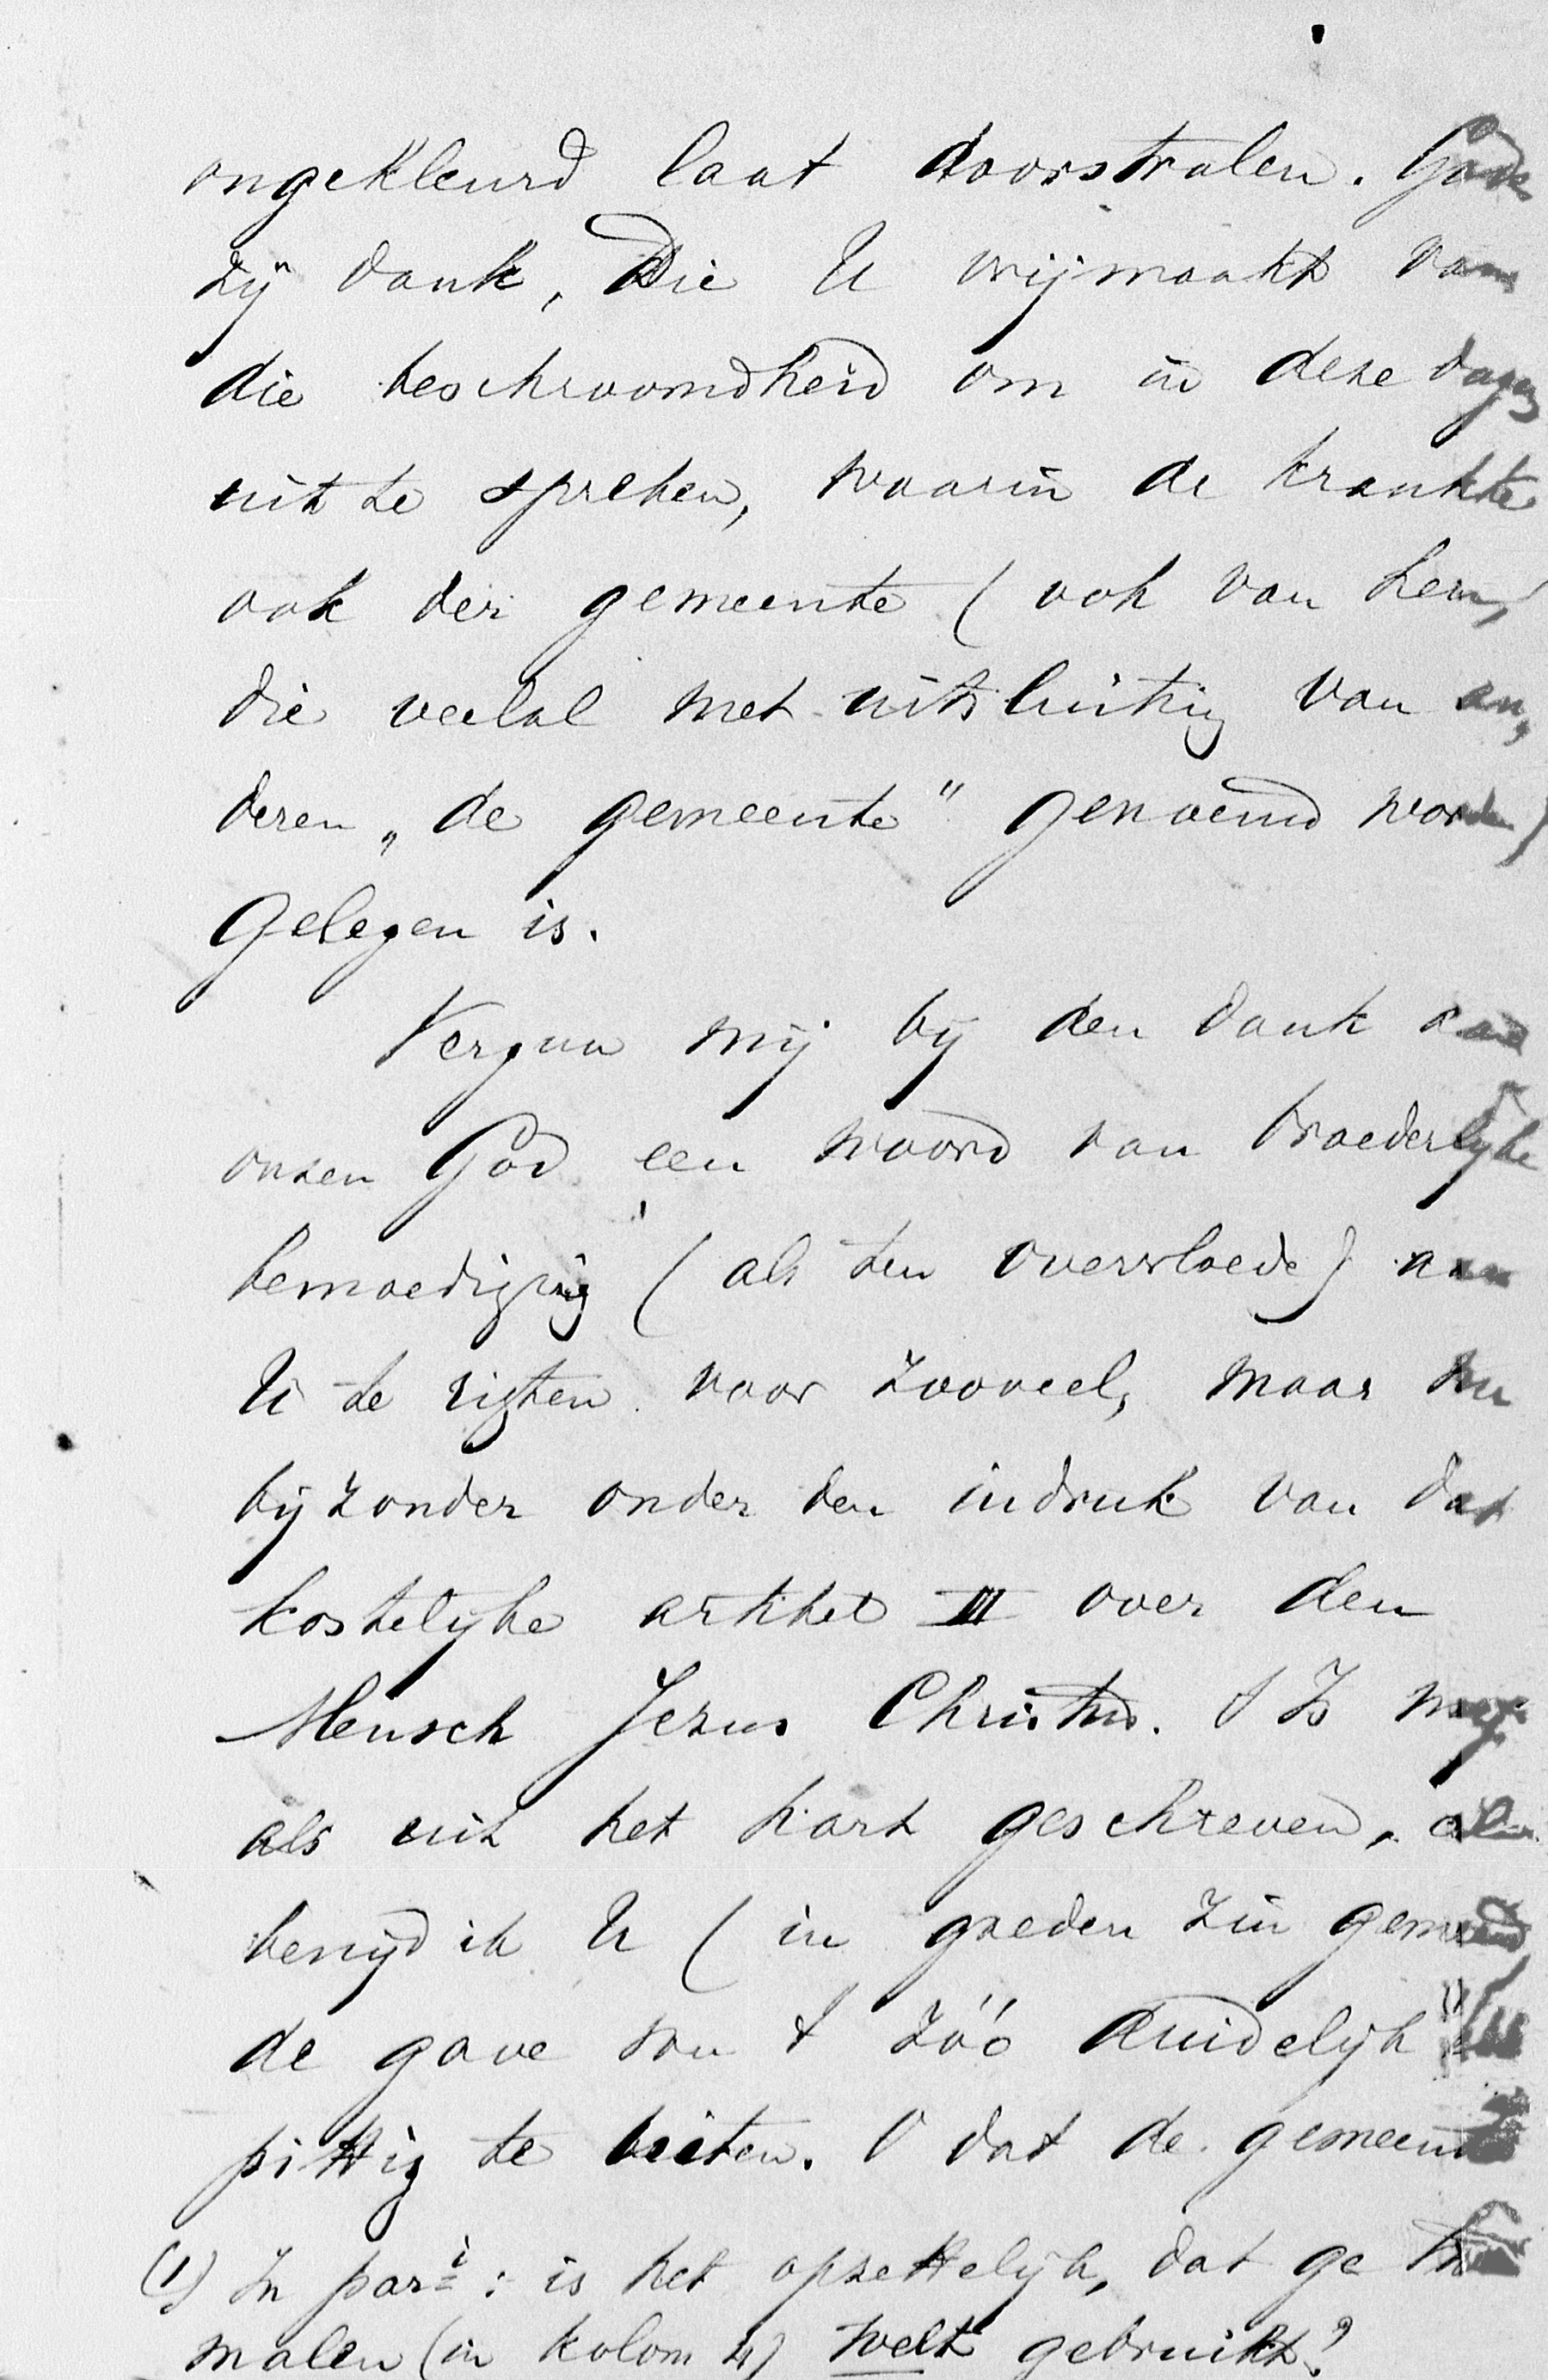 ongekleurd laat doorstralen. Gode
zij dank, Die U vrijmaakt van
die beschroomdheid om in deze dagen
uit te spreken, waarin de krankte
ook der gemeente (ook van hen,
die veelal met uitsluiting van an„
deren „de gemeente" genoemd worden)
gelegen is.
Vergun mij bij den dank aan
onzen God een woord van broederlijke
bemoediging (als ten overvloede) aan
U te rigten voor zooveel, maar nu
bijzonder onder den indruk van dat
kostelijke artikel III over den
Mensch Jezus Christus. 't Is mij
als uit het hart geschreven,
benijd ik U (in goeden zin gemeend
de gave om 't zóó duidelijk
pittig te uiten. O dat de gemeente
(1) In par: is het opzettelijk, dat ge
malen (in kolom 4) welt gebruikt?